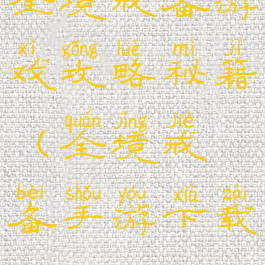 全境戒备游
xì gōng lüè mì jí
戏攻略秘籍
quán jìng jiè
(全境戒
bèi shǒu yóu xià zài
备手游下载